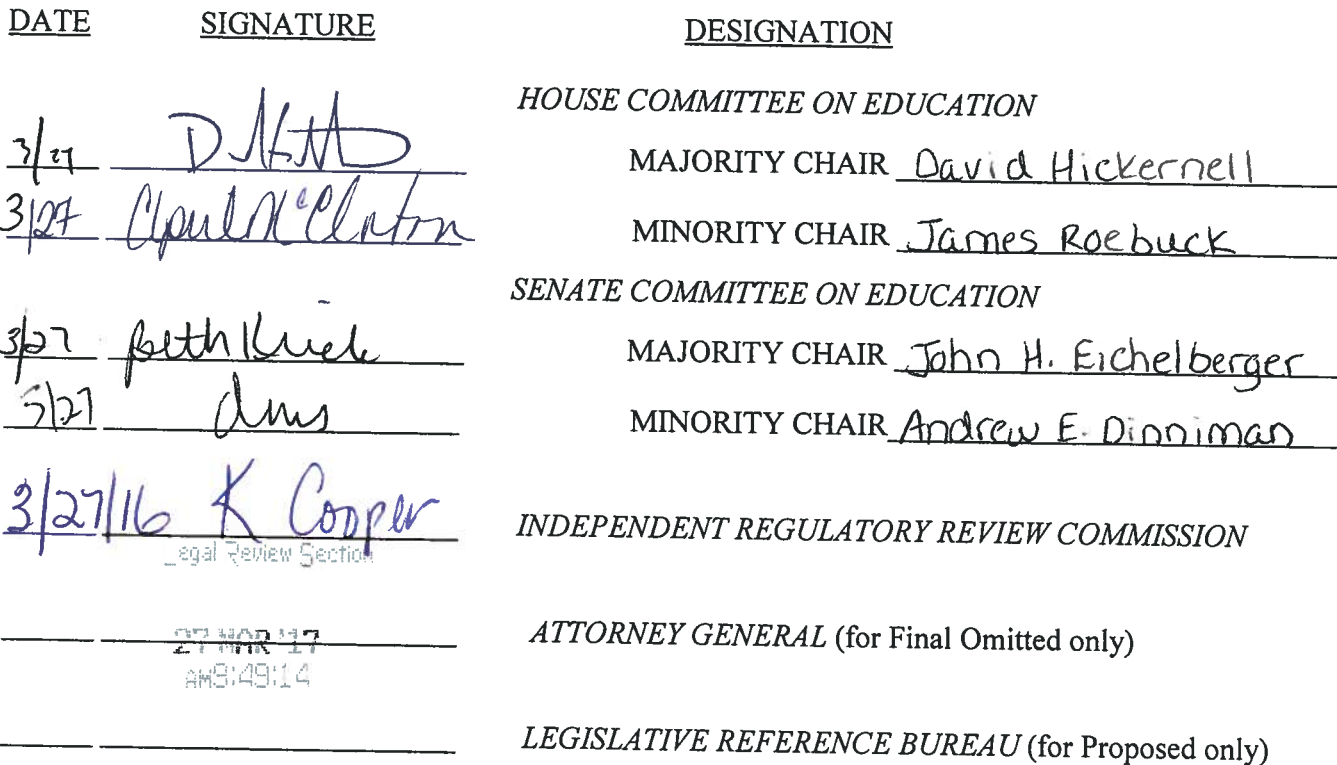 DATE SIGNATURE DESIGNATION
HOUSE COMMITTEE ON EDUCATION
3/27 MAJORITY CHAIR David Hickernell
3/27 MINORITY CHAIR James Roebuck
SENATE COMMITTEE ON EDUCATION
3/27 Beth MAJORITY CHAIR John H. Eichelberger
3/27 MINORITY CHAIR Andrew E. Dinniman
3/27/16 K Cooper INDEPENDENT REGULATORY REVIEW COMMISSION
Legal Review Section
27 MAR '17 ATTORNEY GENERAL (for Final Omitted only)
AM9:49:14
LEGISLATIVE REFERENCE BUREAU (for Proposed only)